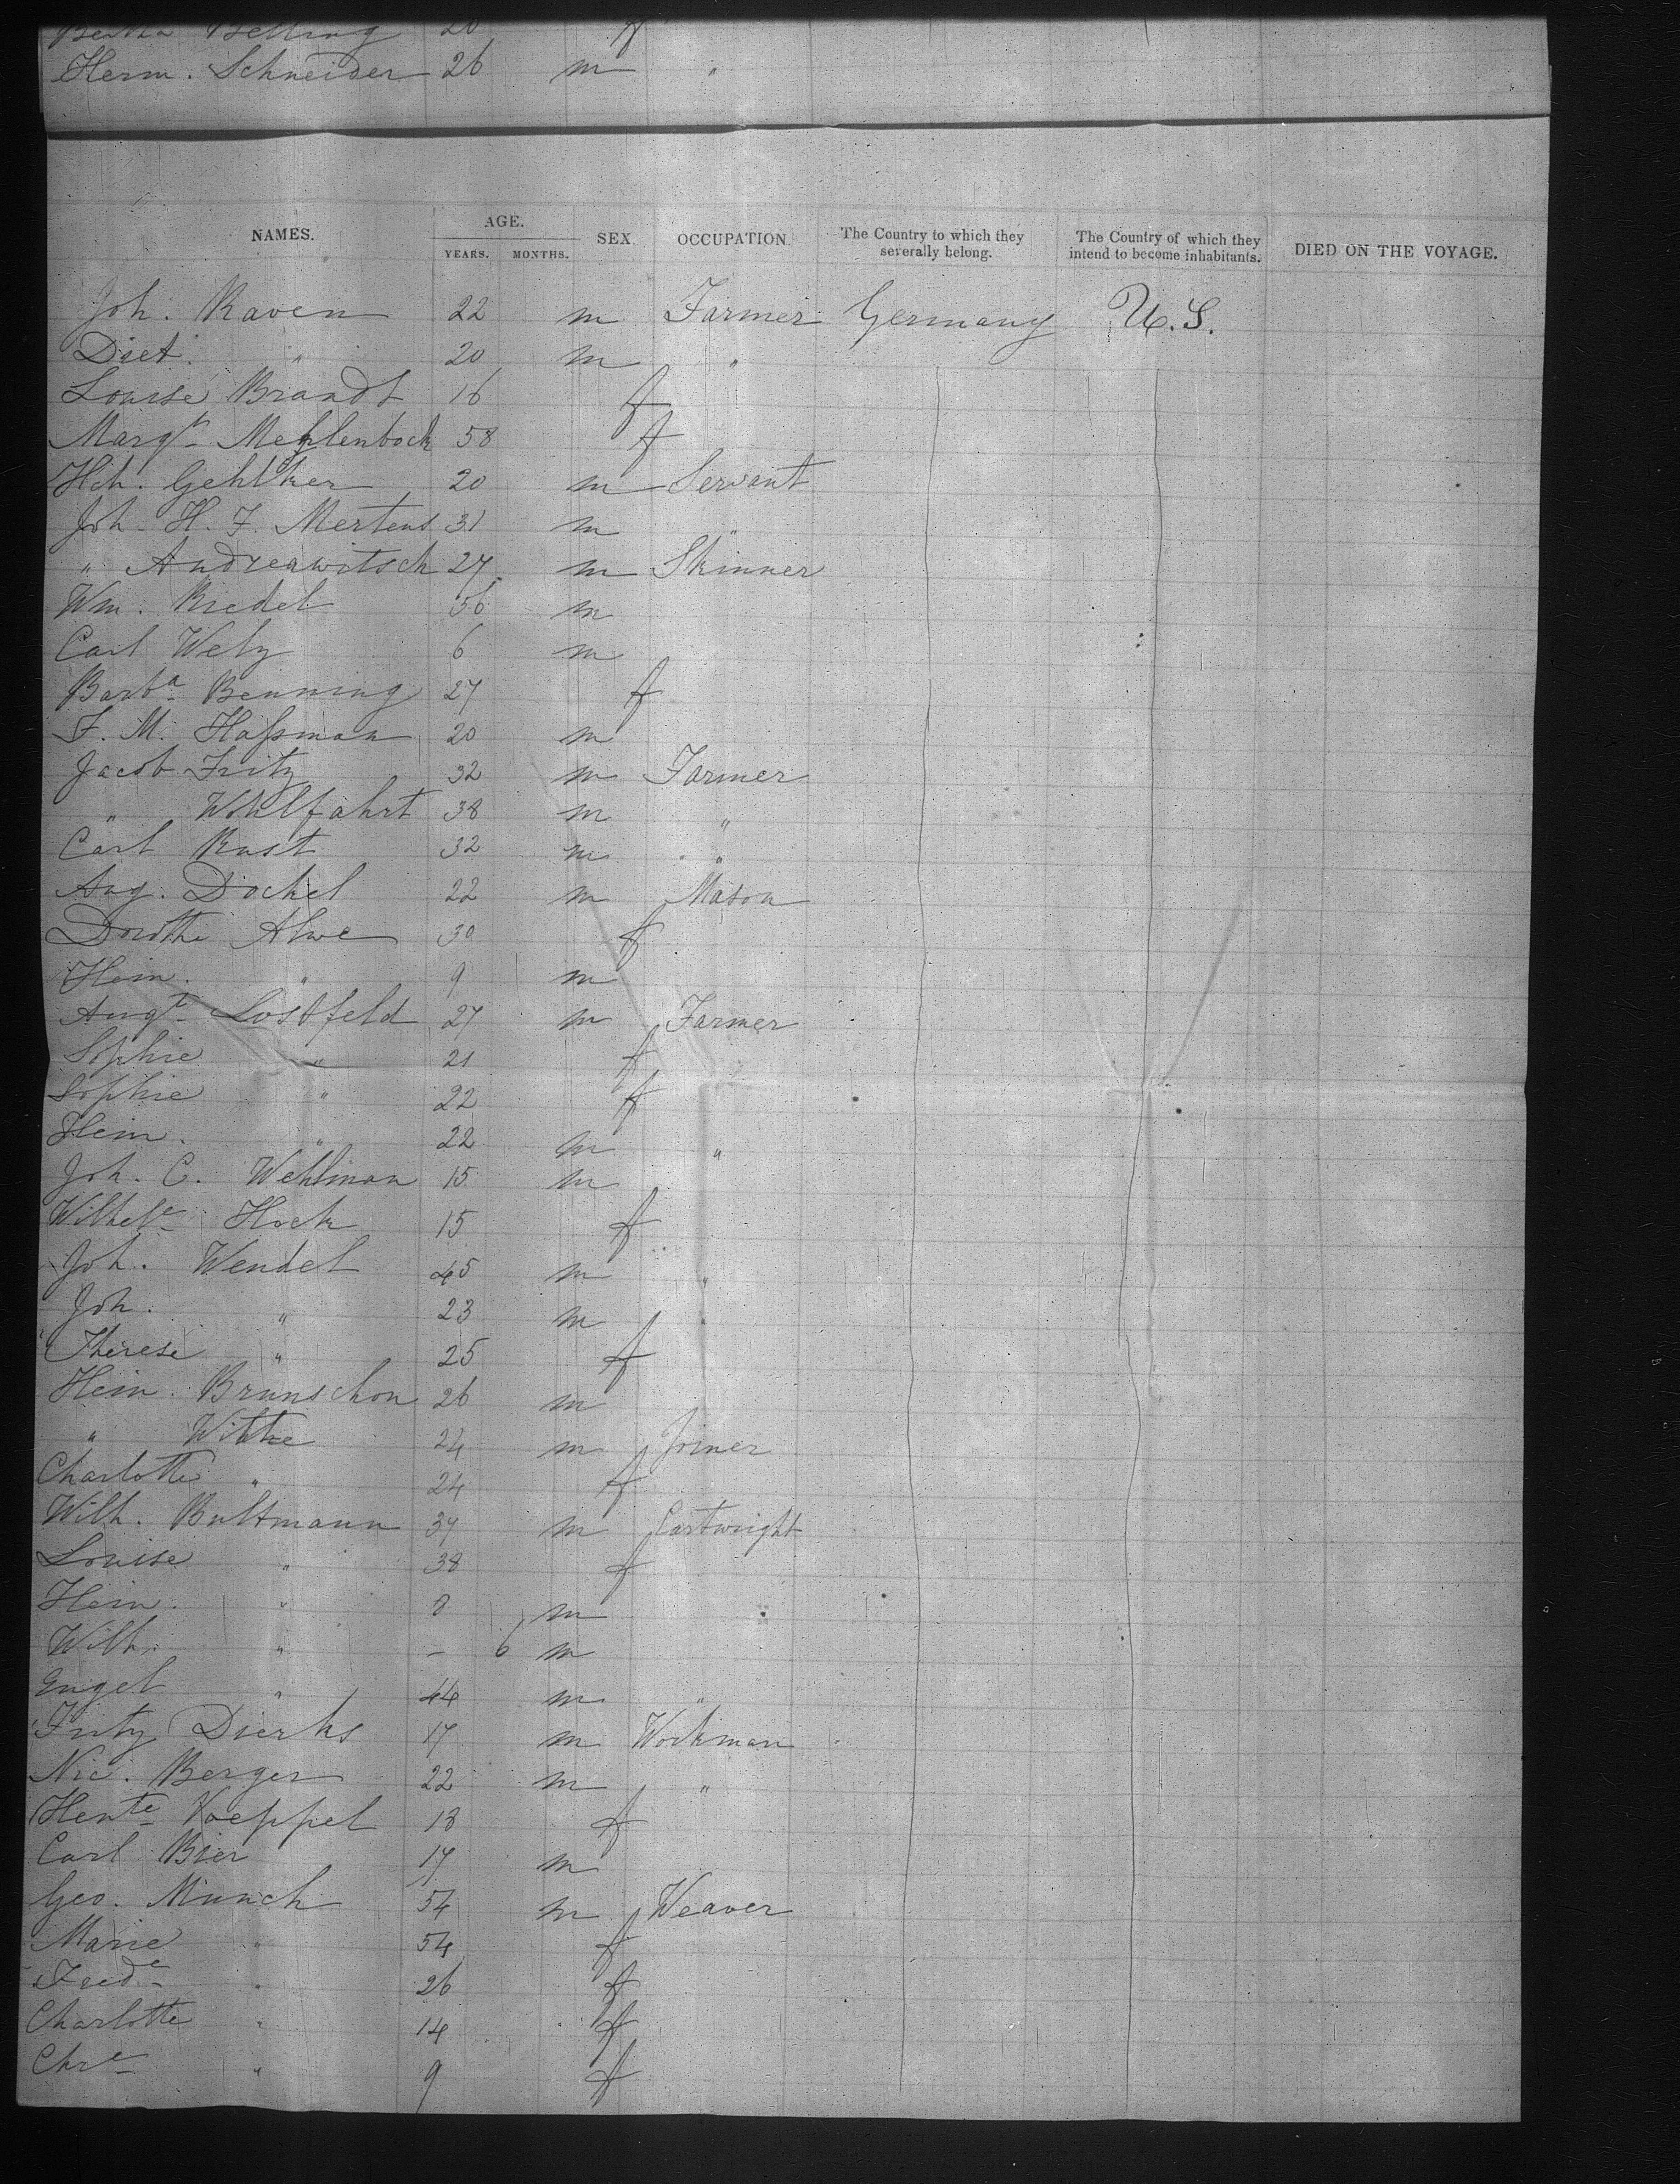 Bertha Belling 20 f
Herm. Schneider 26 m "
NAMES. AGE. YEARS. MONTHS. SEX. OCCUPATION. The Country to which they severally belong. The Country of which they intend to become inhabitants. DIED ON THE VOYAGE.
Joh. Raven 22 m Farmer Germany U.S.
Diet. " 20 m "
Louise Brandt 16 f
Margt. Mehlenbock 58 f
Hch. Gehlker 20 m Servant
Joh. H. F. Mertens 31 m "
" Andreawitsch 27 m Skinner
Wm. Riedel 56 m
Carl Welz 6 m
Barba. Benning 27 f
F. M. Haßman 20 m
Jacob Fritz 32 m Farmer
" Wohlfahrt 38 m "
Carl Rust 32 m "
Aug. Dochel 22 m Mason
Dorothe Alwe 30 f
Hein. " 9 m
Augt. Lostfeld 27 m Farmer
Sophie " 21 f
Sophie " 22 f
Hein. " 22 m "
Joh. C. Wehlman 15 m
Wilhele. Hock 15 f
Joh. Wendel 45 m "
Joh. " 23 m
Therese " 25 f
Hein. Brunschon 26 m
" Witke 24 m Joiner
Charlotte " 24 f
Wilh. Bultmann 37 m Cartwright
Louise " 38 f
Hein. " 8 m
Wilh. " - 6 m
Engel " 44 m "
Fritz Dierks 17 m Workman
Nic. Berger 22 m "
Hente. Koeppel 18 f
Carl Bier 17 m
Geo. Munch 54 m Weaver
Marie " 54 f
Frede. " 26 f
Charlotte " 14 f
Chre. " 9 f